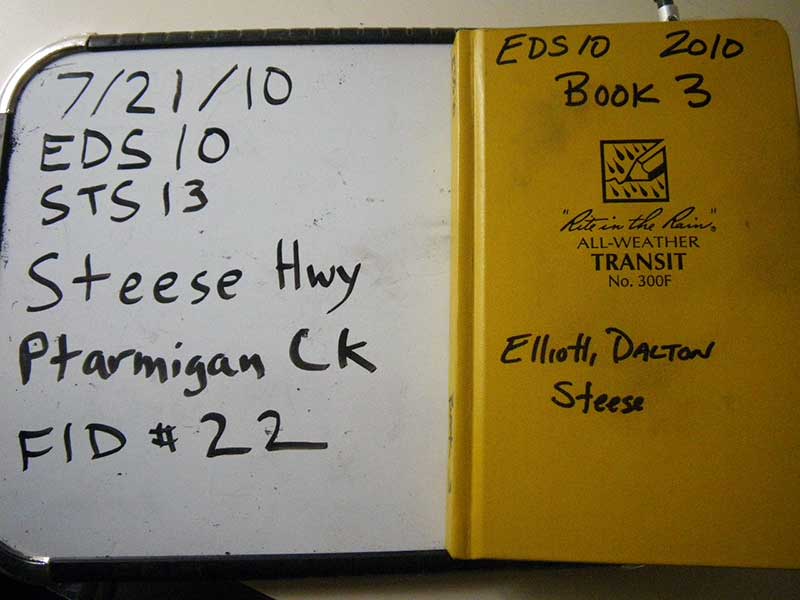 7/21/10
EDS 10
STS 13
Steese Hwy
Ptarmigan Ck
FID # 22
EDS 10 2010
Book 3
"Rite in the Rain"®
ALL-WEATHER
TRANSIT
No. 300F
Elliott, DALTON
Steese